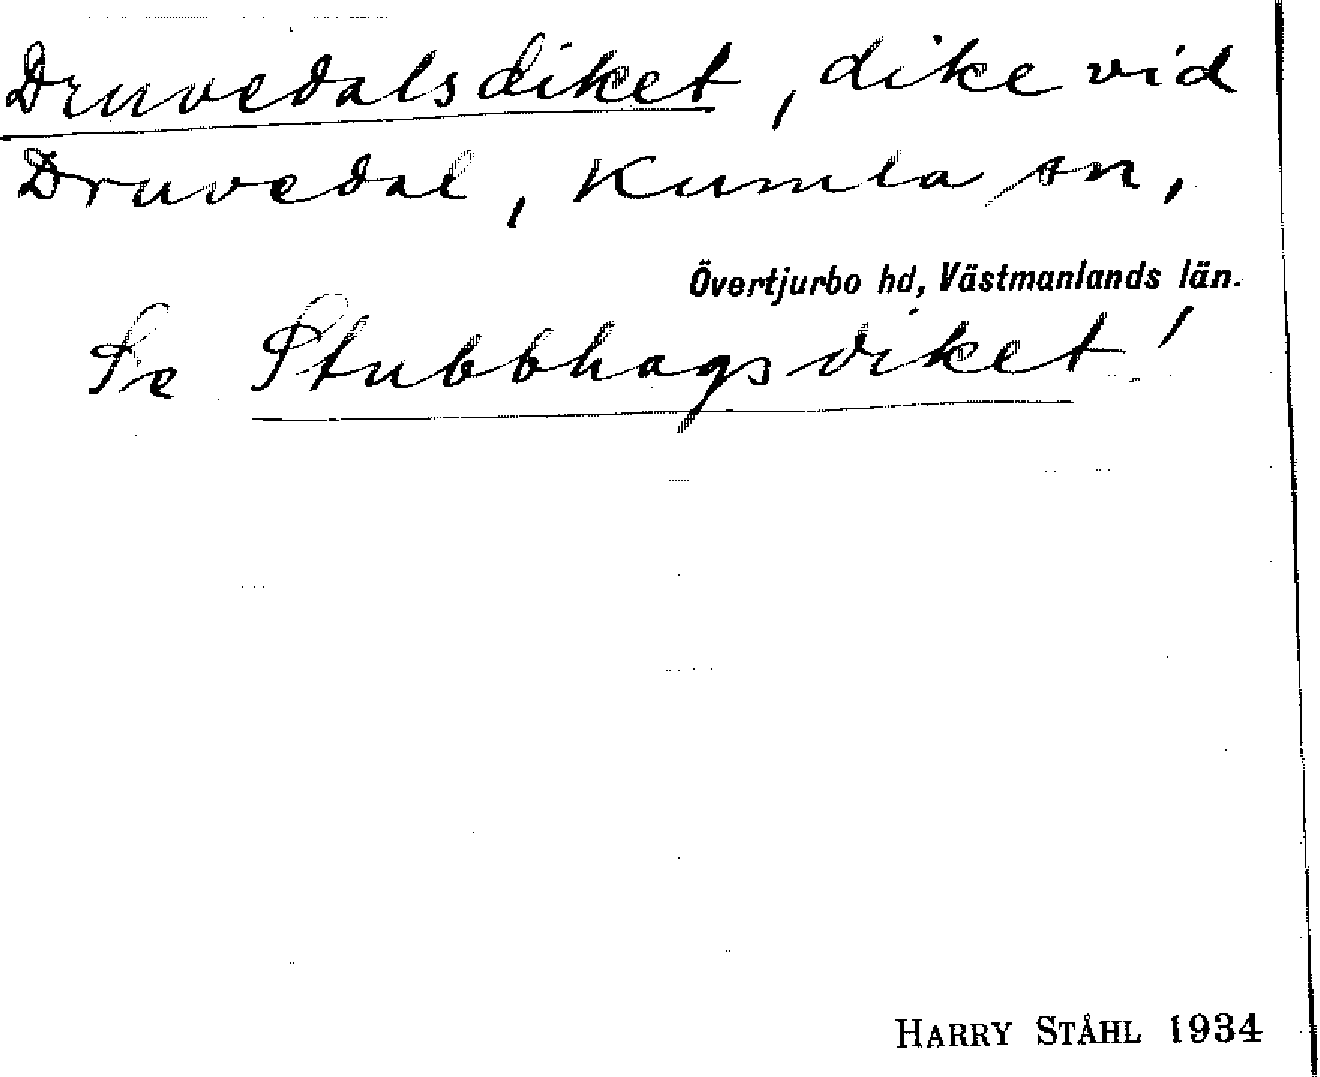 Druvedalsdiket, dike vid
Druvedal, Kumla sn,
Övertjurbo hd, Västmanlands län.
Se Stubbhagsdiket!
HARRY STÅHL 1934